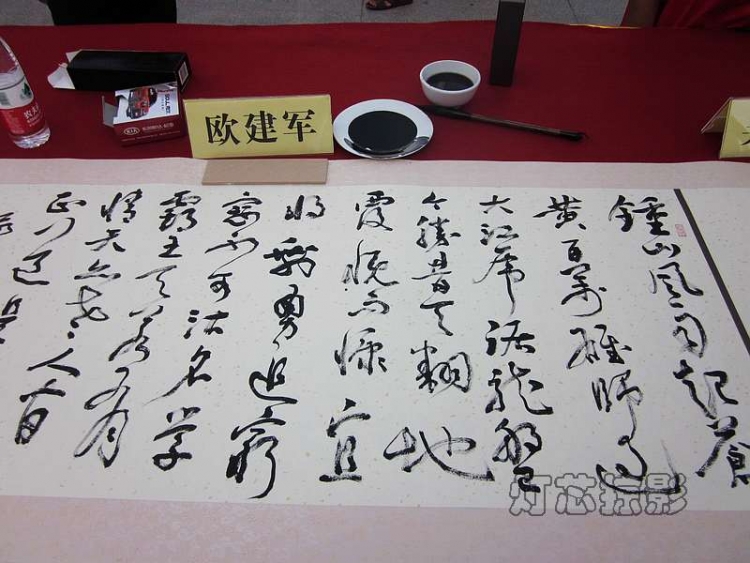 欧建军
农夫
KIA
鍾山风雨起蒼
黄百萬雄師过
大江虎踞龍盤
今勝昔天翻地
覆慨而慷宜
将剩勇追窮
寇不可沽名学
霸王天若有
情天亦老人间
正道是
灯芯掠影